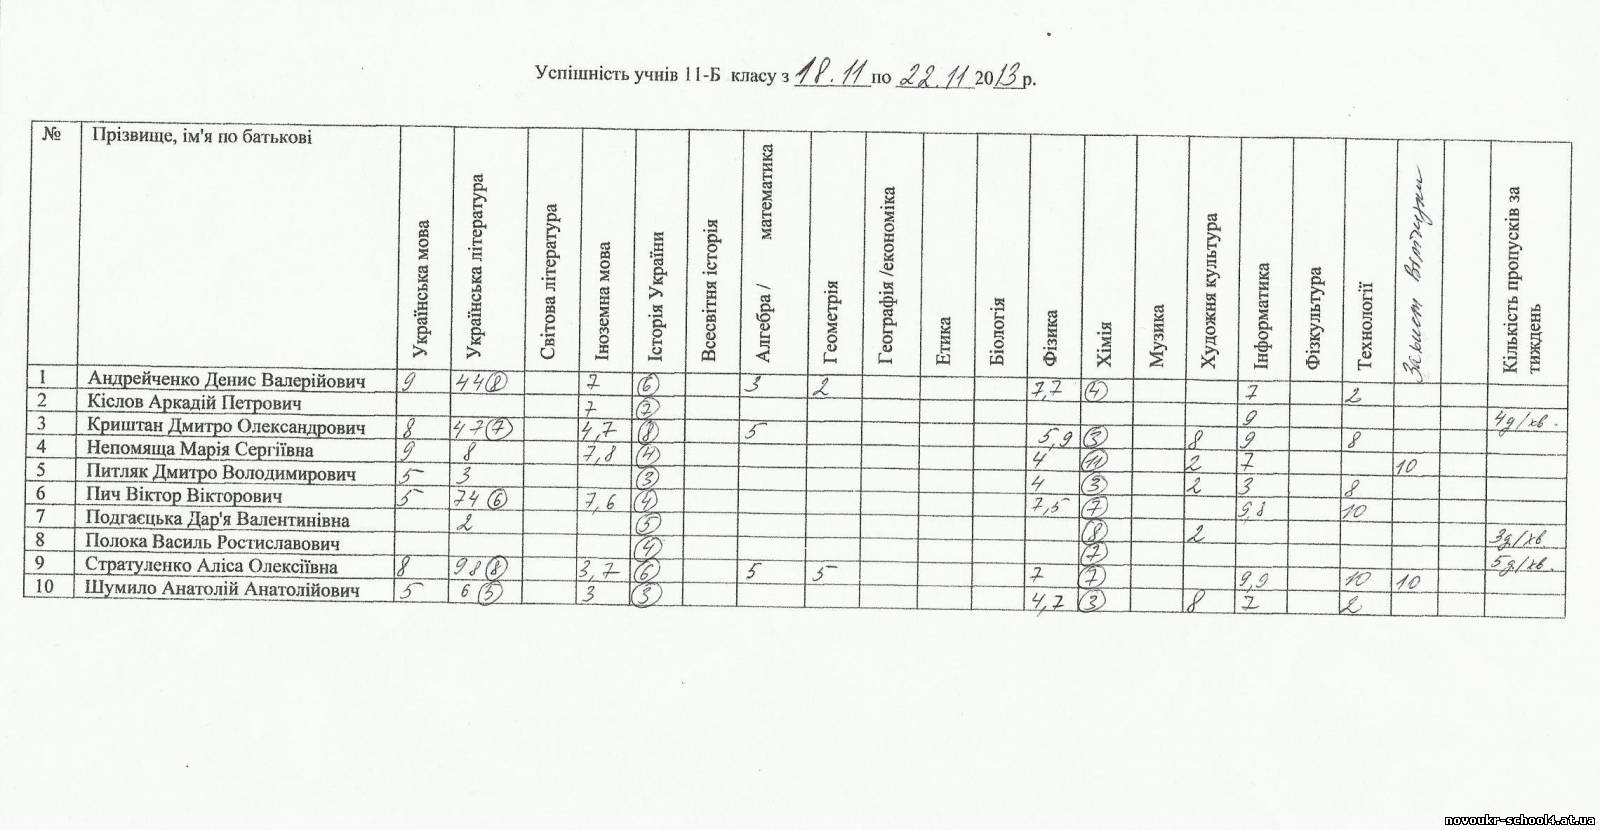 Успішність учнів 11-Б класу з 18.11 по 22.11 2013 р.
№ Прізвище, ім'я по батькові Українська мова Українська література Світова література Іноземна мова Історія України Всесвітня історія Алгебра / математика Геометрія Географія /економіка Етика Біологія Фізика Хімія Музика Художня культура Інформатика Фізкультура Технології Захист Вітчизни Кількість пропусків за тиждень
1 Андрейченко Денис Валерійович 9 4 4 8 7 6 3 2 7,7 4 7 2
2 Кіслов Аркадій Петрович 7 7 9 4д/хв.
3 Криштан Дмитро Олександрович 8 4 7 7 4,7 8 5 5,9 3 8 9 8
4 Непомяща Марія Сергіївна 9 8 7,8 4 4 11 2 7 10
5 Питляк Дмитро Володимирович 5 3 3 4 3 2 3 8
6 Пич Віктор Вікторович 5 7 4 6 7,6 4 7,5 7 9,8 10
7 Подгаєцька Дар'я Валентинівна 2 5 8 2 3д/хв.
8 Полока Василь Ростиславович 4 7 5д/хв.
9 Стратуленко Аліса Олексіївна 8 9 8 8 3,7 6 5 5 7 7 9,9 10 10
10 Шумило Анатолій Анатолійович 5 6 5 3 3 4,7 3 8 7 2
novoukr-school4.at.ua